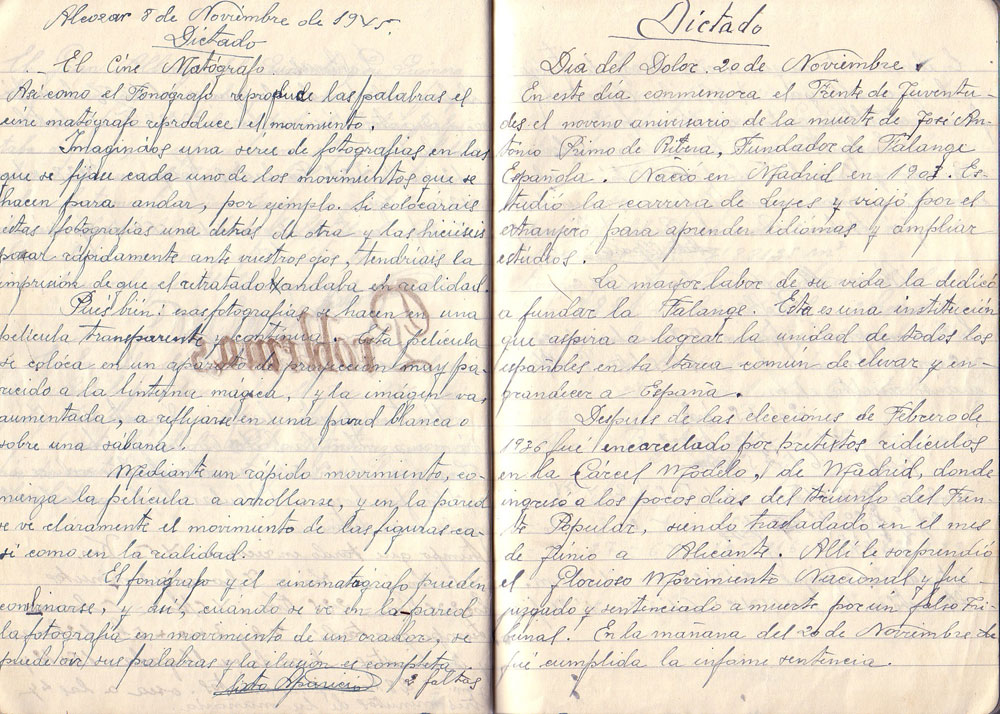 Alcozar 8 de Noviembre de 1945.
Dictado
El Cine Matógrafo.
Asi como el Fonografo reproduce las palabras el
cine matógrafo reproduce el movimiento.
Imagindos una serie de fotografias en las
que se fijdu cada uno de los movimientos que se
hacen para andar, por ejemplo. Si colócarais
éstas fotografias una detrás de otra y las hicieseis
pasar rápidamente ante vuestros ojos, tendriais la
impresión de que el retratado andaba en realidad.
Pues bién: esas fotografias se hacen en una
pelicula transparente y contínua. Esta pelicula
se colóca en un aparato de proyección muy pa-
recido a la linterna magica, y la imagen va,
aumentada, a reflejarse en una pared blanca o
sobre una sabana.
Mediante un rápido movimiento, co-
mienza la película a arrollarse, y en la pared
se ve claramente el movimiento de las figuras ca-
si como en la realidad.
El fonógrafo y el cinematógrafo pueden
combinarse, y así, cuando se ve en la pared
la fotografía en movimiento de un orador, se
puede oir sus palabras y la ilusión es completa
Sixto Aparicio 2 faltas
Problemas
Dictado
Dia del Dolor. 20 de Noviembre
En este día conmemora el Frente de Juventu-
des el noveno aniversario de la muerte de José An-
tonio Primo de Ribera, Fundador de Falange
Española. Nació en Madrid en 1903. Es-
tudió la carrera de Leyes y viajó por el
extranjero para aprender idiomas y ampliar
estúdios.
La mayor labor de su vida la dedicó
a fundar la Falange. Esta es una institución
que aspira a lograr la unidad de todos los
españoles en la tarea común de elevar y en-
grandecer a España.
Despues de las elecciones de Febrero de
1936 fué encarculado por pretextos ridículos
en la Carcel Modelo, de Madrid, donde
ingresó a los pocos dias del triunfo del Fren-
te Popular, siendo trasladado en el mes
de Júnio a Alicante. Allí le sorprendió
el Glorioso Movimiento Nacional y fué
juzgado y sentenciado a muerte por un falso Tri-
bunal. En la mañana del 20 de Noviembre de
fué cumplida la infame sentencia.